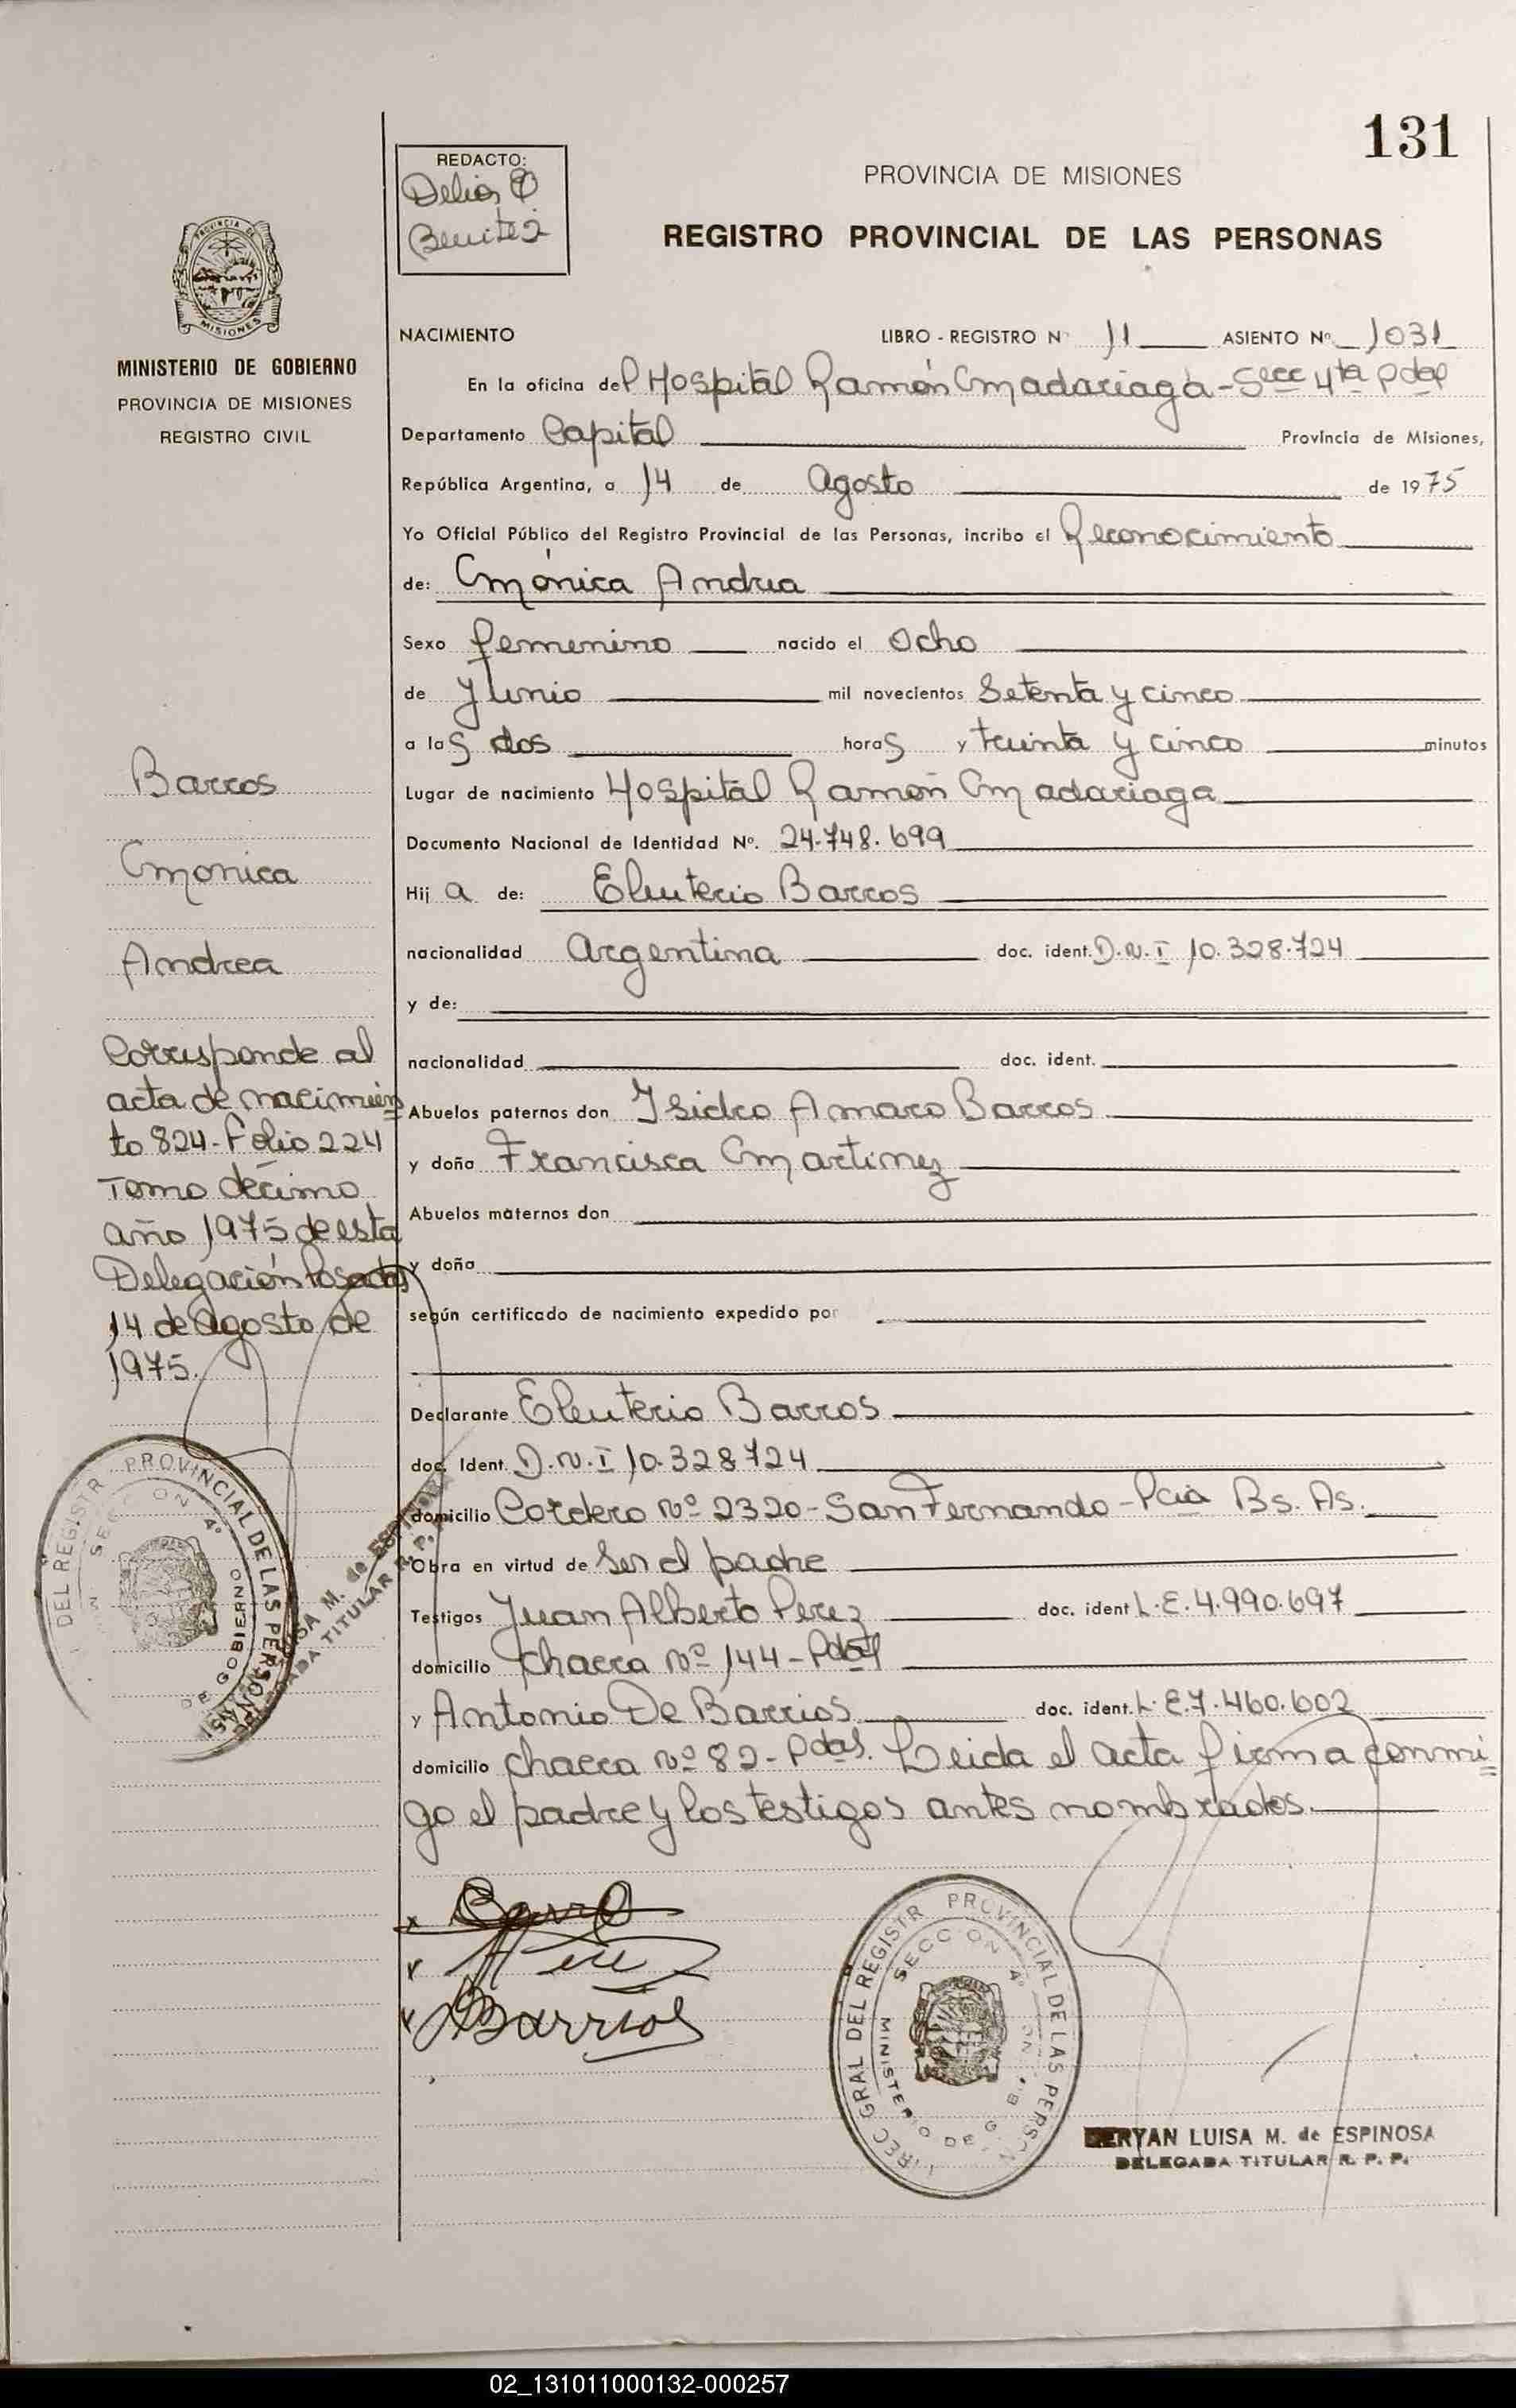 131
REDACTO:
Delia
Benitez
PROVINCIA DE MISIONES
REGISTRO PROVINCIAL DE LAS PERSONAS
PROVINCIA DE
MISIONES
MINISTERIO DE GOBIERNO
PROVINCIA DE MISIONES
REGISTRO CIVIL
NACIMIENTO LIBRO - REGISTRO Nº 11 ASIENTO Nº 1031
En la oficina del Hospital Ramón Madariaga - Secc 4ta Pdas
Departamento Capital Provincia de Misiones,
República Argentina, a 14 de Agosto de 1975
Yo Oficial Público del Registro Provincial de las Personas, incribo el Reconocimiento
de: Mónica Andrea
Sexo femenino nacido el Ocho
de Junio mil novecientos Setenta y cinco
a las dos horas y treinta y cinco minutos
Lugar de nacimiento Hospital Ramón Madariaga
Documento Nacional de Identidad Nº. 24.748.699
Hija de: Eleuterio Barros
nacionalidad Argentina doc. ident. D.N.I 10.328.724
y de:
nacionalidad doc. ident.
Abuelos paternos don Isidro Amaro Barros
y doña Francisca Martinez
Abuelos maternos don
y doña
según certificado de nacimiento expedido por
Declarante Eleuterio Barros
doc. Ident. D.N.I 10.328724
domicilio Cordero Nº 2320 - San Fernando - Pcia Bs. As.
Obra en virtud de Ser el padre
Testigos Juan Alberto Perez doc. ident L.E. 4.990.697
domicilio Chacra Nº 144 - Pdas
y Antonio De Barrios doc. ident. L.E. 7.460.602
domicilio Chacra Nº 82 - Pdas. Leida el acta firma conmi
go el padre y los testigos antes nombrados.
Barros
Monica
Andrea
Corresponde al
acta de nacimien
to 824 - Folio 224
Tomo décimo
año 1975 de esta
Delegación Posadas
14 de Agosto de
1975.
DEL REGISTR PROVINCIAL DE LAS PERSONAS
SECCION 4º
DE GOBIERNO
LUISA M. de ESPINOSA
DELEGADA TITULAR R. P. P.
x Barro
x Perez
x Barrios
DIREC GRAL DEL REGISTR PROVINCIAL DE LAS PERSON
SECC ON 4º
MINISTERIO DE G B
BERYAN LUISA M. de ESPINOSA
DELEGADA TITULAR R. P. P.
02_131011000132-000257